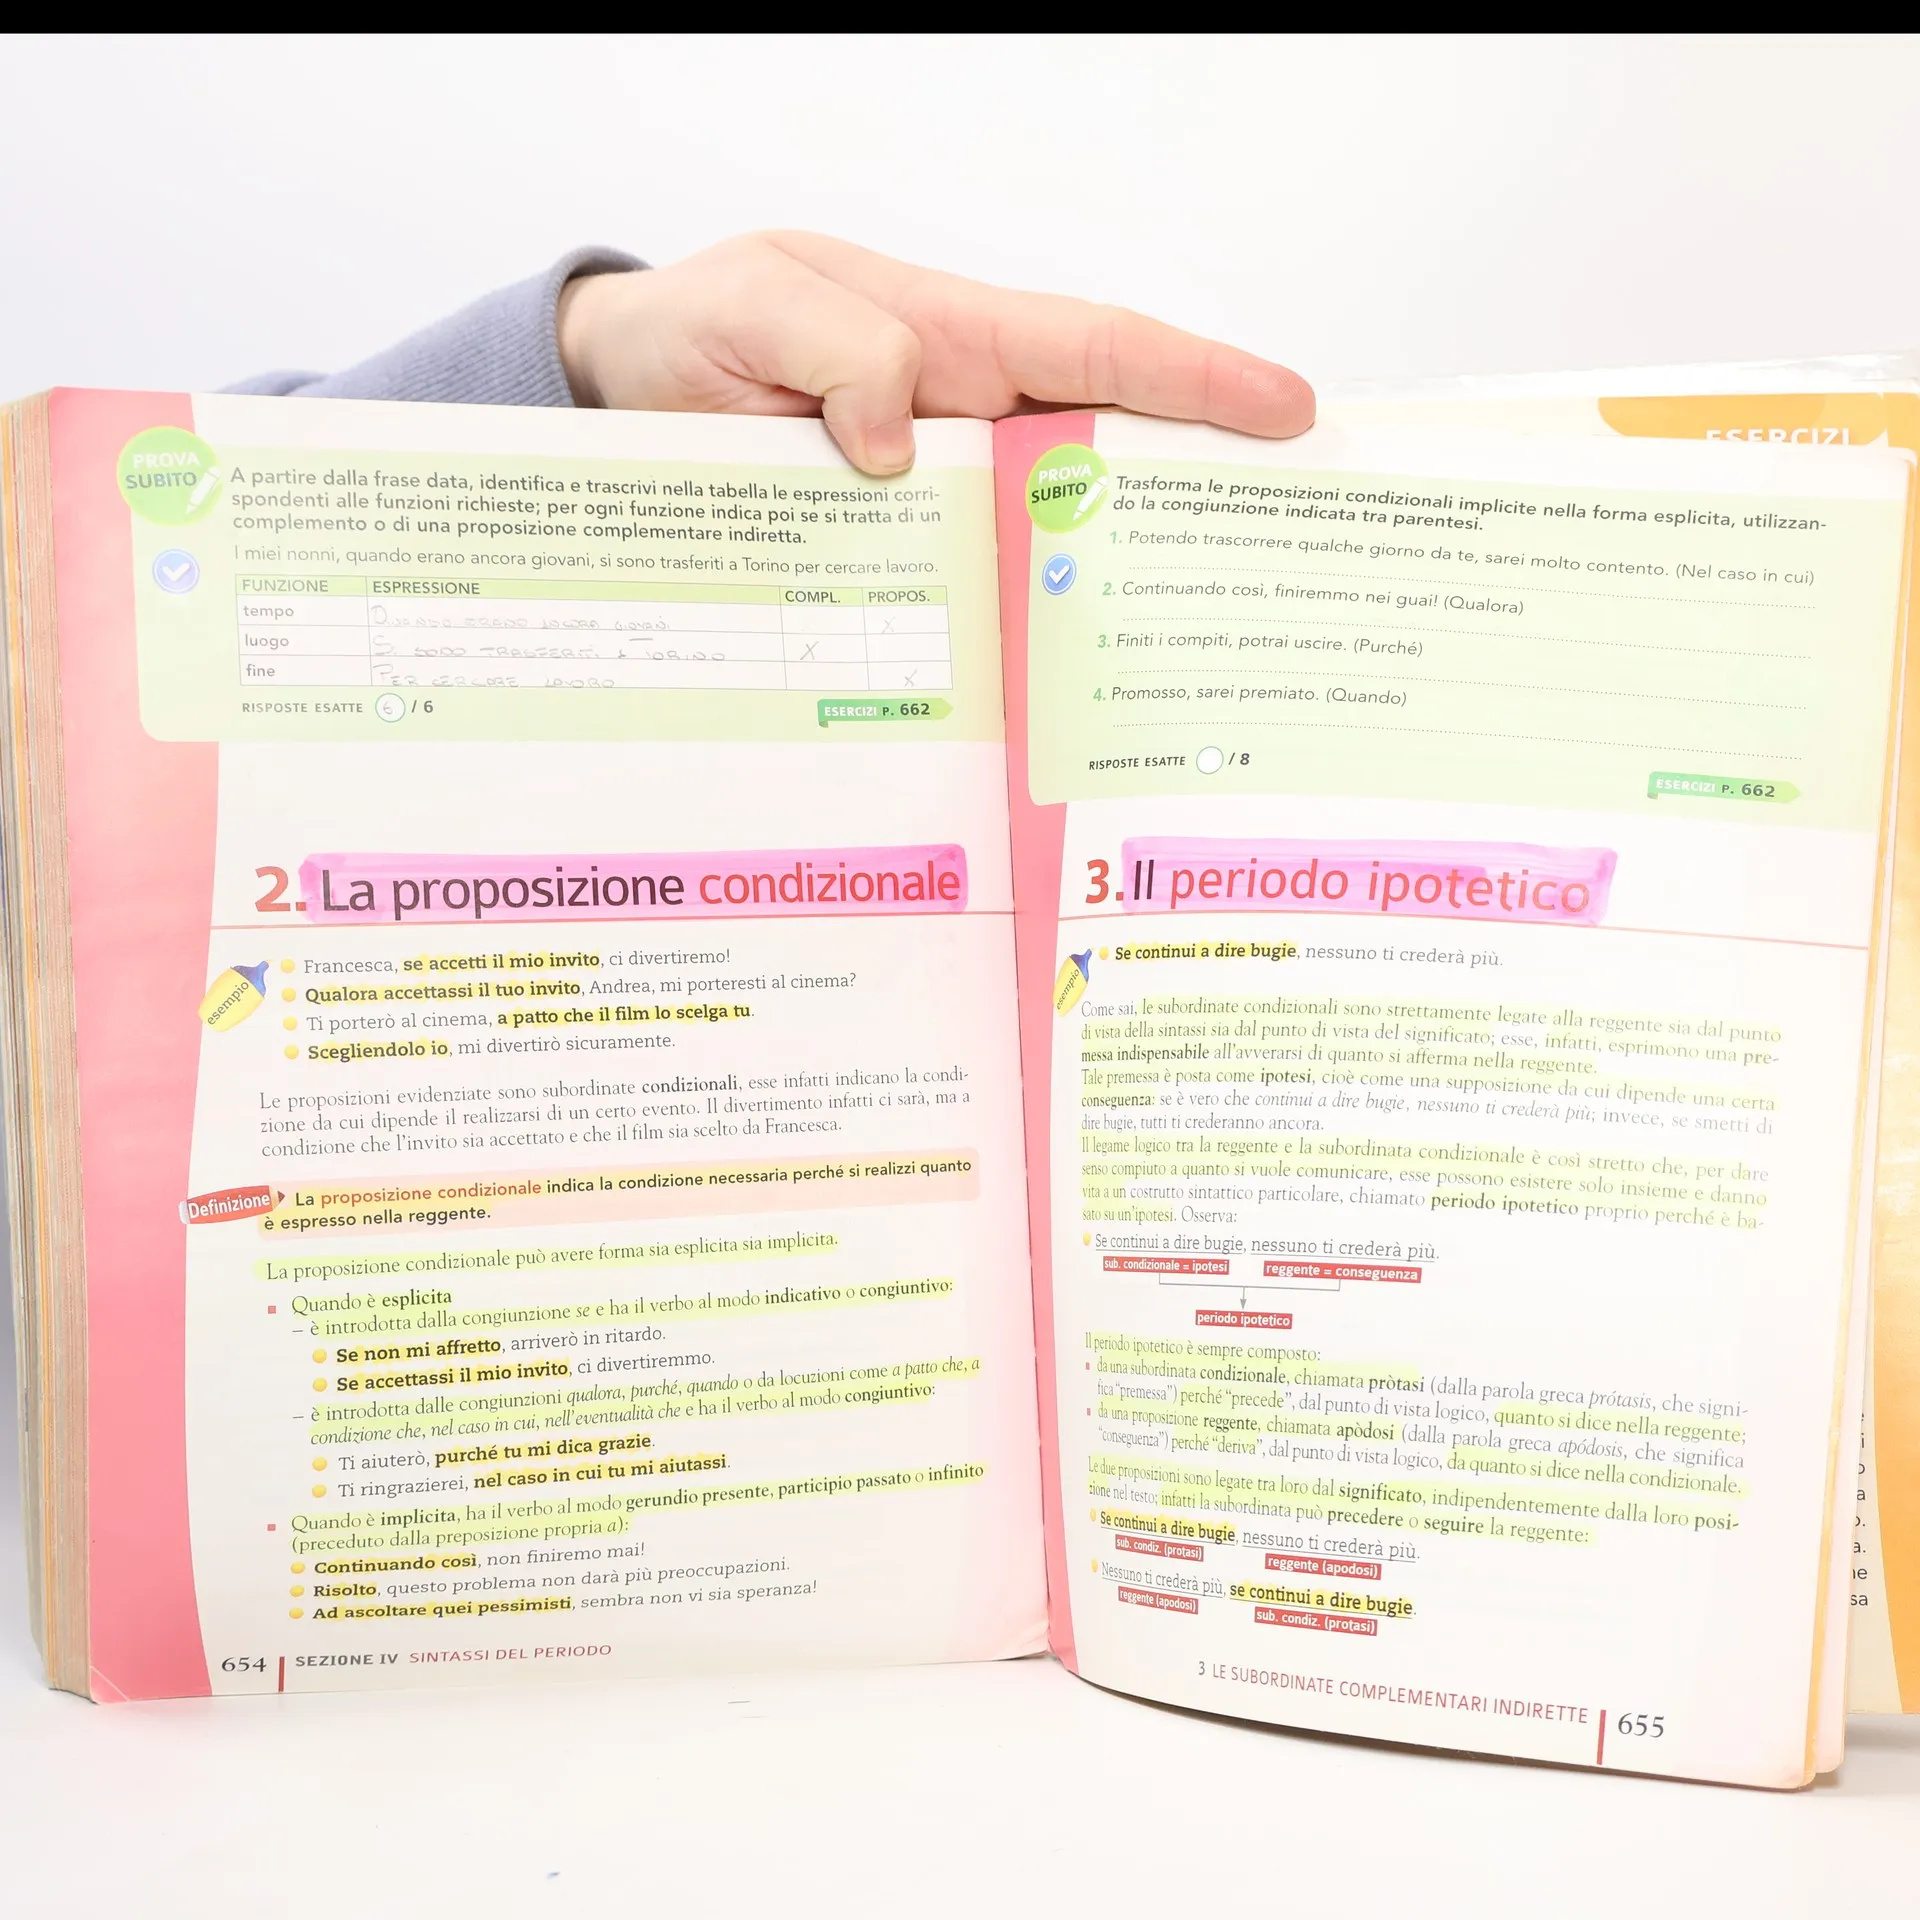 PROVA
SUBITO
A partire dalla frase data, identifica e trascrivi nella tabella le espressioni corri-
spondenti alle funzioni richieste; per ogni funzione indica poi se si tratta di un
complemento o di una proposizione complementare indiretta.
I miei nonni, quando erano ancora giovani, si sono trasferiti a Torino per cercare lavoro.
FUNZIONE ESPRESSIONE COMPL. PROPOS.
tempo QUANDO ERANO ANCORA GIOVANI X
luogo SI SONO TRASFERITI A TORINO X
fine PER CERCARE LAVORO X
RISPOSTE ESATTE 6 / 6
ESERCIZI P. 662
2. La proposizione condizionale
esempio
Francesca, se accetti il mio invito, ci divertiremo!
Qualora accettassi il tuo invito, Andrea, mi porteresti al cinema?
Ti porterò al cinema, a patto che il film lo scelga tu.
Scegliendolo io, mi divertirò sicuramente.
Le proposizioni evidenziate sono subordinate condizionali, esse infatti indicano la condi-
zione da cui dipende il realizzarsi di un certo evento. Il divertimento infatti ci sarà, ma a
condizione che l'invito sia accettato e che il film sia scelto da Francesca.
Definizione La proposizione condizionale indica la condizione necessaria perché si realizzi quanto
è espresso nella reggente.
La proposizione condizionale può avere forma sia esplicita sia implicita.
Quando è esplicita
– è introdotta dalla congiunzione se e ha il verbo al modo indicativo o congiuntivo:
Se non mi affretto, arriverò in ritardo.
Se accettassi il mio invito, ci divertiremmo.
– è introdotta dalle congiunzioni qualora, purché, quando o da locuzioni come a patto che, a
condizione che, nel caso in cui, nell'eventualità che e ha il verbo al modo congiuntivo:
Ti aiuterò, purché tu mi dica grazie.
Ti ringrazierei, nel caso in cui tu mi aiutassi.
Quando è implicita, ha il verbo al modo gerundio presente, participio passato o infinito
(preceduto dalla preposizione propria a):
Continuando così, non finiremo mai!
Risolto, questo problema non darà più preoccupazioni.
Ad ascoltare quei pessimisti, sembra non vi sia speranza!
654 SEZIONE IV SINTASSI DEL PERIODO
ESERCIZI
PROVA
SUBITO
Trasforma le proposizioni condizionali implicite nella forma esplicita, utilizzan-
do la congiunzione indicata tra parentesi.
1. Potendo trascorrere qualche giorno da te, sarei molto contento. (Nel caso in cui)
2. Continuando così, finiremmo nei guai! (Qualora)
3. Finiti i compiti, potrai uscire. (Purché)
4. Promosso, sarei premiato. (Quando)
RISPOSTE ESATTE / 8
ESERCIZI P. 662
3. Il periodo ipotetico
esempio
Se continui a dire bugie, nessuno ti crederà più.
Come sai, le subordinate condizionali sono strettamente legate alla reggente sia dal punto
di vista della sintassi sia dal punto di vista del significato; esse, infatti, esprimono una pre-
messa indispensabile all'avverarsi di quanto si afferma nella reggente.
Tale premessa è posta come ipotesi, cioè come una supposizione da cui dipende una certa
conseguenza: se è vero che continui a dire bugie, nessuno ti crederà più; invece, se smetti di
dire bugie, tutti ti crederanno ancora.
Il legame logico tra la reggente e la subordinata condizionale è così stretto che, per dare
senso compiuto a quanto si vuole comunicare, esse possono esistere solo insieme e danno
vita a un costrutto sintattico particolare, chiamato periodo ipotetico proprio perché è ba-
sato su un'ipotesi. Osserva:
Se continui a dire bugie, nessuno ti crederà più.
sub. condizionale = ipotesi reggente = conseguenza
periodo ipotetico
Il periodo ipotetico è sempre composto:
da una subordinata condizionale, chiamata pròtasi (dalla parola greca prótasis, che signi-
fica "premessa") perché "precede", dal punto di vista logico, quanto si dice nella reggente;
da una proposizione reggente, chiamata apòdosi (dalla parola greca apódosis, che significa
"conseguenza") perché "deriva", dal punto di vista logico, da quanto si dice nella condizionale.
Le due proposizioni sono legate tra loro dal significato, indipendentemente dalla loro posi-
zione nel testo; infatti la subordinata può precedere o seguire la reggente:
Se continui a dire bugie, nessuno ti crederà più.
sub. condiz. (protasi) reggente (apodosi)
Nessuno ti crederà più, se continui a dire bugie.
reggente (apodosi) sub. condiz. (protasi)
3 LE SUBORDINATE COMPLEMENTARI INDIRETTE 655